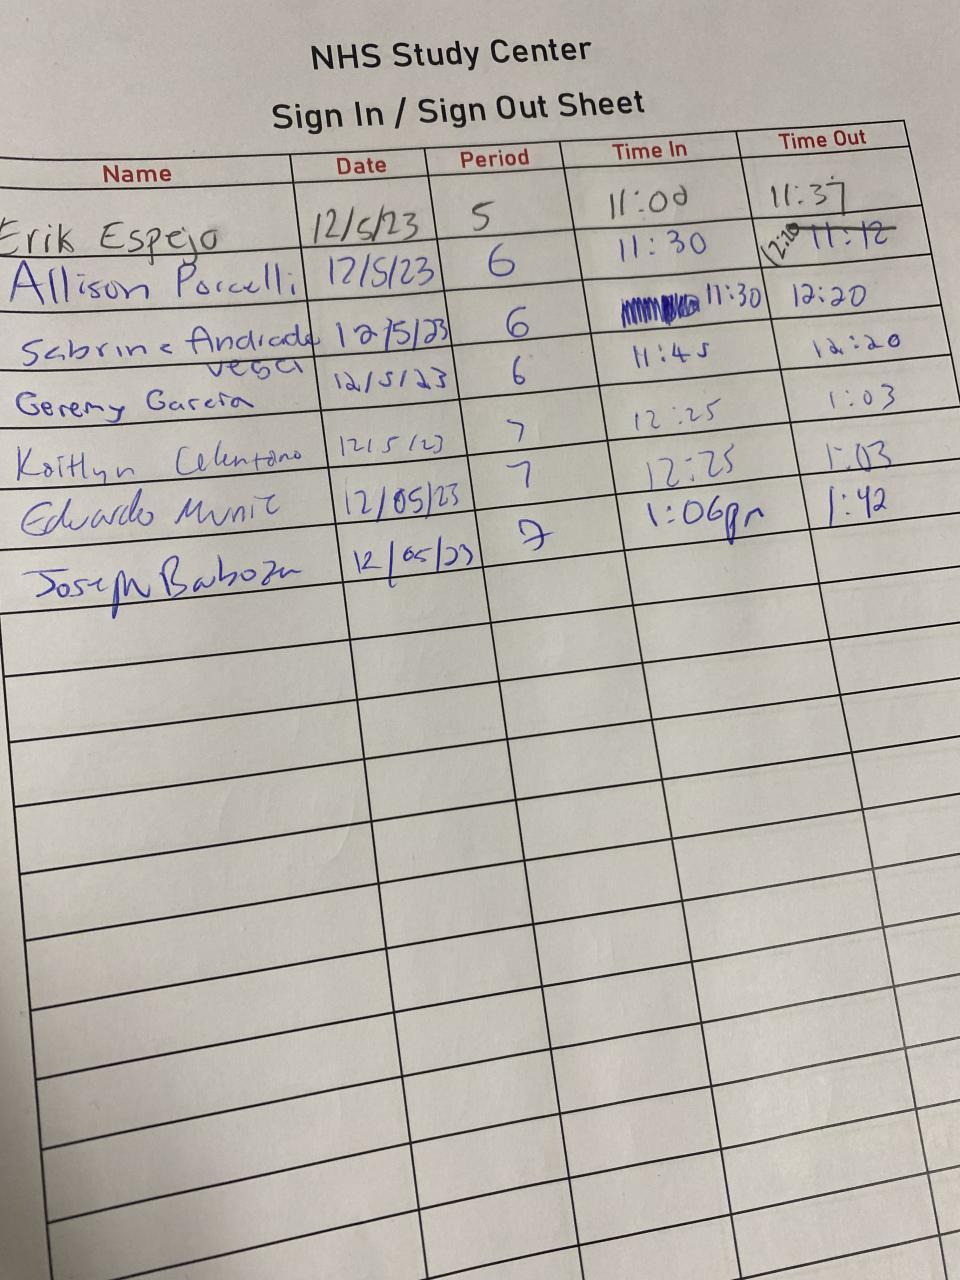 NHS Study Center
Sign In / Sign Out Sheet
Name Date Period Time In Time Out
Erik Espejo 12/5/23 5 11:00 11:37
Allison Porcelli 12/5/23 6 11:30 12:20 11:12
Sabrina Andrade Vega 12/5/23 6 11:30 12:20
Geremy Garcia 12/5/23 6 11:45 12:20
Kaitlyn Celentano 12/5/23 7 12:25 1:03
Eduardo Muniz 12/05/23 7 12:25 1:03
Joseph Barboza 12/05/23 7 1:06pm 1:42